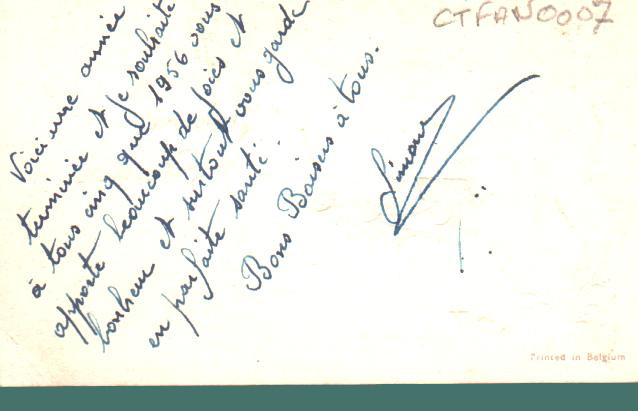 CTFAN0007
Voici une année
terminée et je souhaite
à tous cinq que 1956 vous
apporte beaucoup de joies et
bonheur et surtout vous garde
en parfaite santé.
Bons Baisers à tous.
Simone
Printed in Belgium